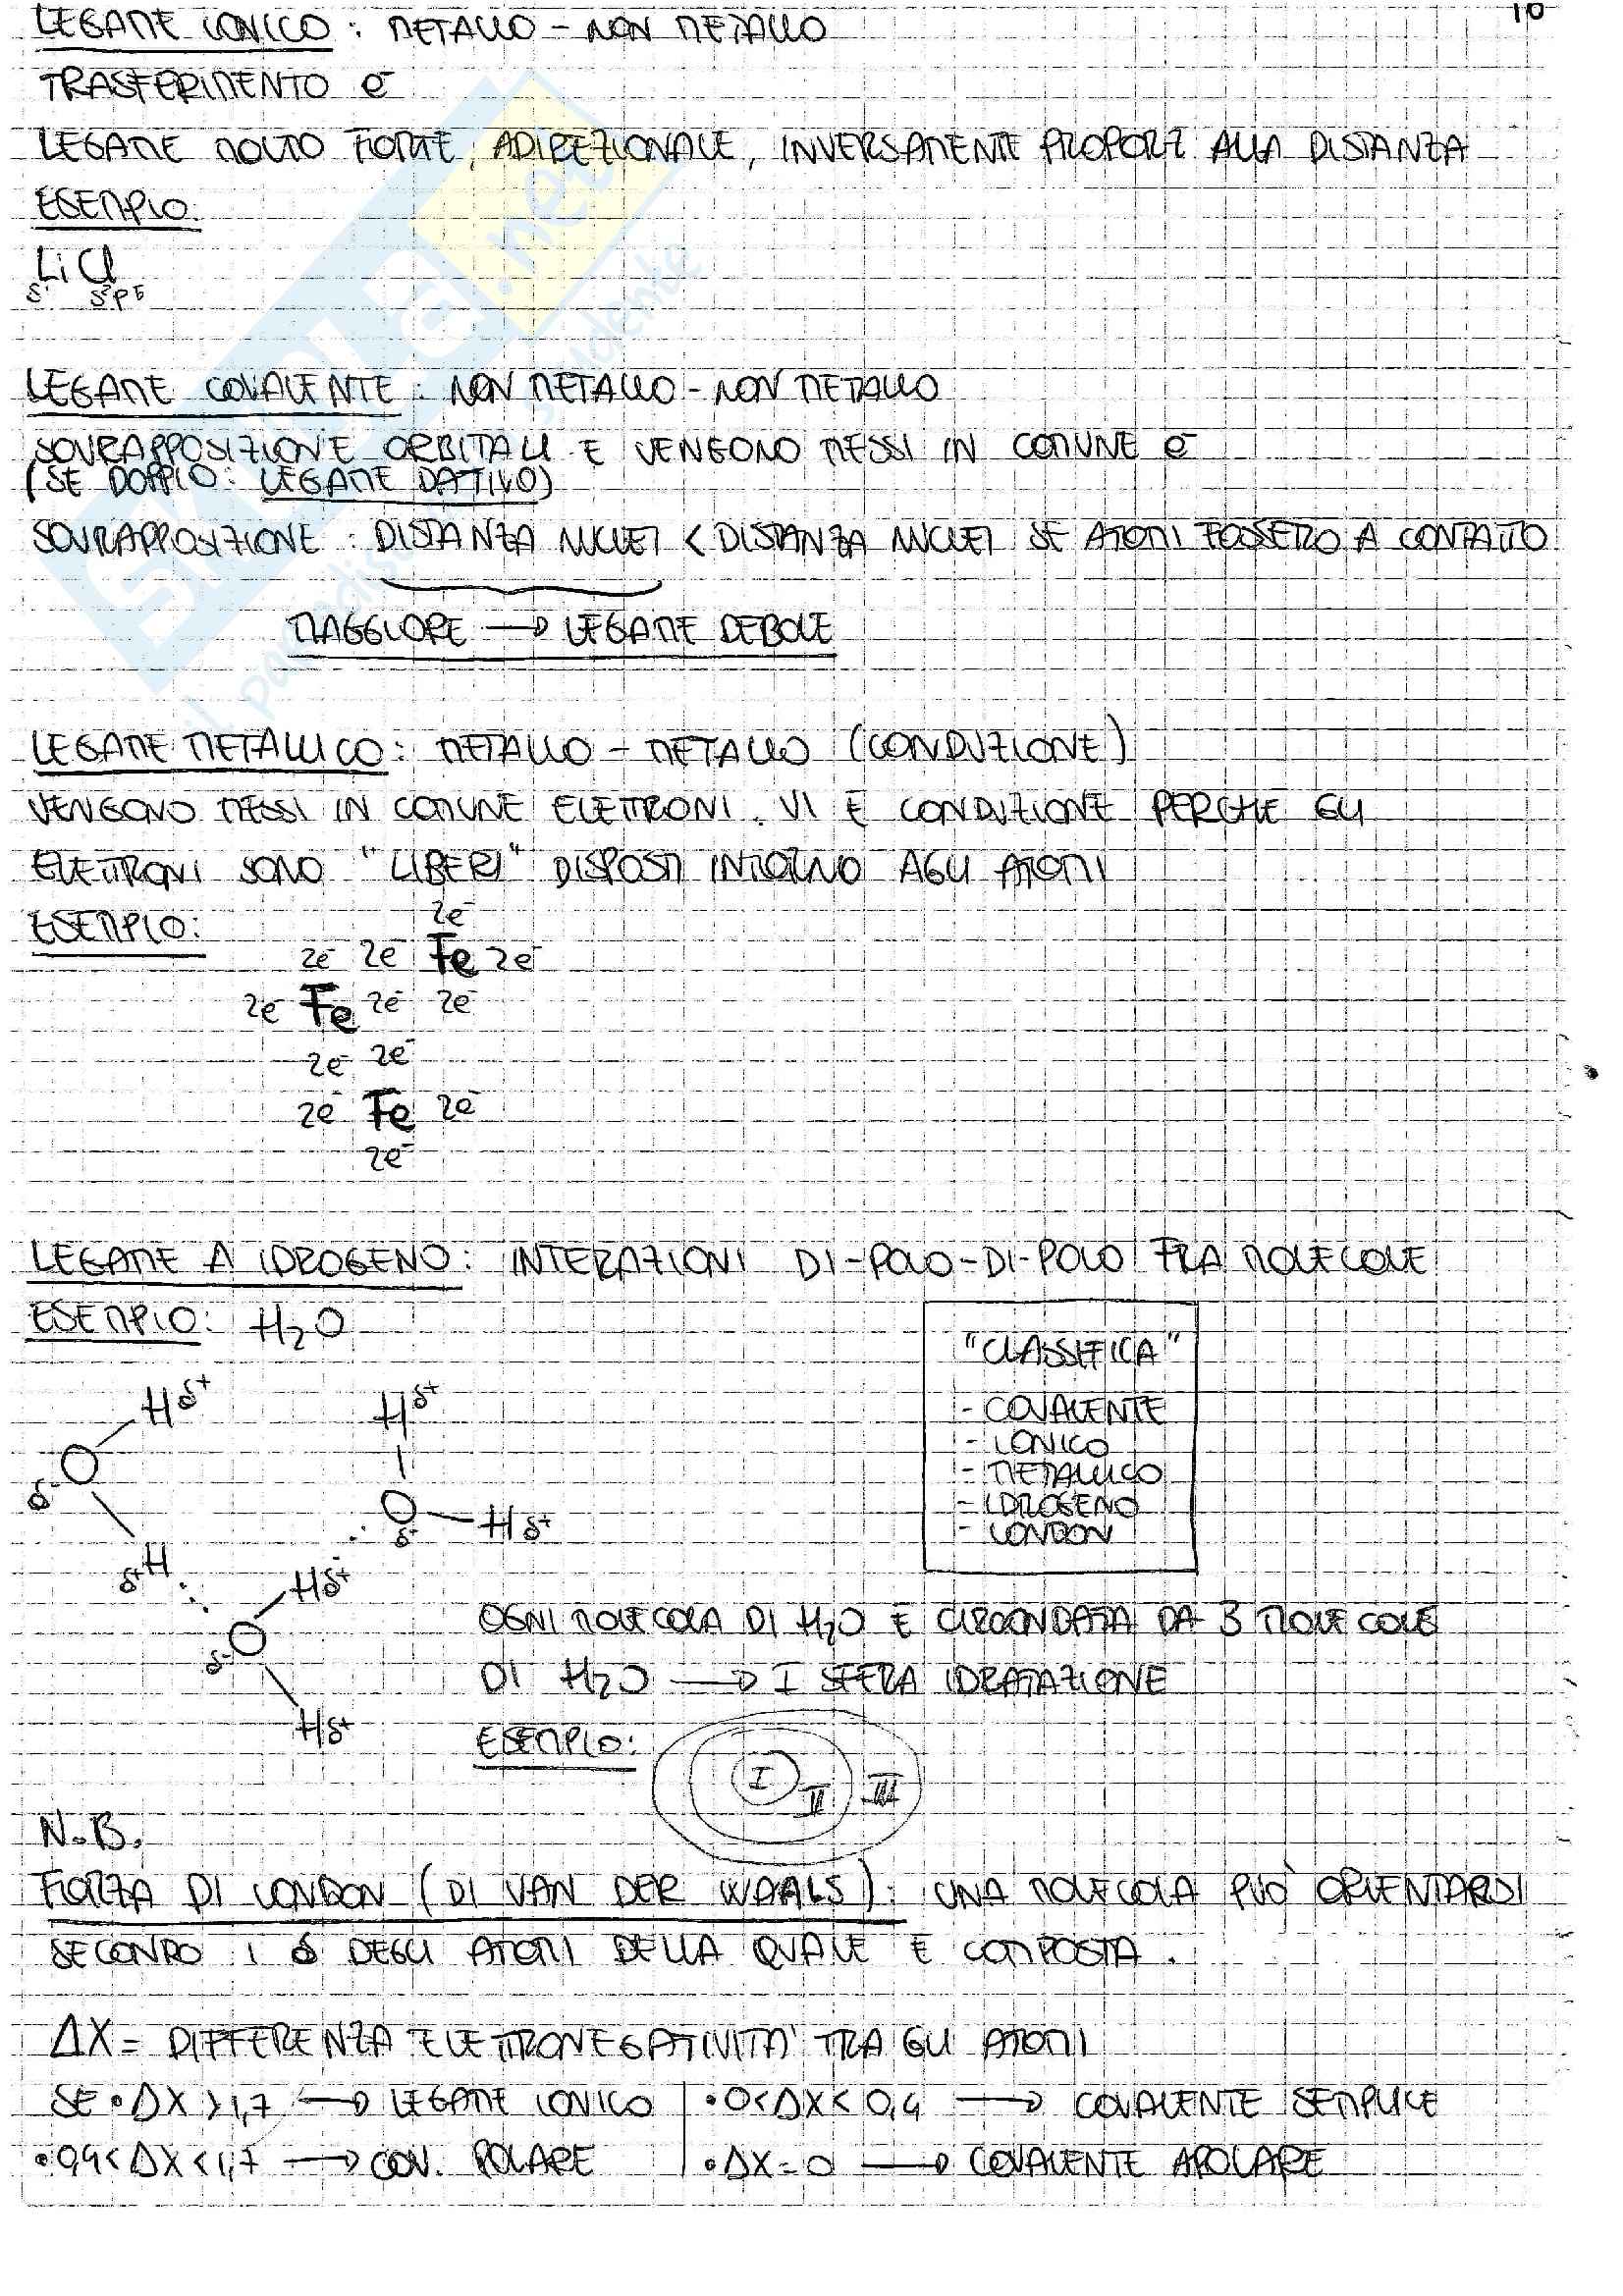 10
LEGAME IONICO: METALLO - NON METALLO
TRASFERIMENTO e⁻
LEGAME MOLTO FORTE, ADIREZIONALE, INVERSAMENTE PROPORZ ALLA DISTANZA
ESEMPIO:
LiCl
s¹ s²p⁵
LEGAME COVALENTE: NON METALLO - NON METALLO
SOVRAPPOSIZIONE ORBITALI E VENGONO MESSI IN COMUNE e⁻
(SE DOPPIO: LEGAME DATIVO)
SOVRAPPOSIZIONE: DISTANZA NUCLEI < DISTANZA NUCLEI SE ATOMI FOSSERO A CONTATTO
MAGGIORE → LEGAME DEBOLE
LEGAME METALLICO: METALLO - METALLO (CONDUZIONE)
VENGONO MESSI IN COMUNE ELETTRONI. VI È CONDUZIONE PERCHÉ GLI
ELETTRONI SONO "LIBERI" DISPOSTI INTORNO AGLI ATOMI
ESEMPIO:
2e⁻
2e⁻ 2e⁻ Fe 2e⁻
2e⁻ Fe 2e⁻ 2e⁻
2e⁻ 2e⁻
2e⁻ Fe 2e⁻
2e⁻
LEGAME A IDROGENO: INTERAZIONI DI-POLO-DI-POLO FRA MOLECOLE
ESEMPIO: H₂O
"CLASSIFICA"
- COVALENTE
- IONICO
- METALLICO
- IDROGENO
- LONDON
Hδ⁺ Hδ⁺
O
δ⁻ O Hδ⁺
δ⁺
δ⁺H Hδ⁺
O
δ⁻
Hδ⁺
OGNI MOLECOLA DI H₂O È CIRCONDATA DA 3 MOLECOLE
DI H₂O → I SFERA IDRATAZIONE
ESEMPIO:
I II III
N.B.
FORZA DI LONDON (DI VAN DER WAALS): UNA MOLECOLA PUÒ ORIENTARSI
SECONDO I δ DEGLI ATOMI DELLA QUALE È COMPOSTA.
ΔX = DIFFERENZA ELETTRONEGATIVITA' TRA GLI ATOMI
SE • ΔX > 1,7 → LEGAME IONICO | • 0<ΔX<0,4 → COVALENTE SEMPLICE
• 0,4<ΔX<1,7 → COV. POLARE | • ΔX=0 → COVALENTE APOLARE